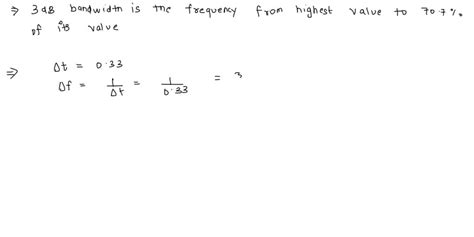 ⇒ 3 dB bandwidth is the frequency from highest value to 70.7%
of its value
⇒ Δt = 0.33
Δf = 1/Δt = 1/0.33 = 3